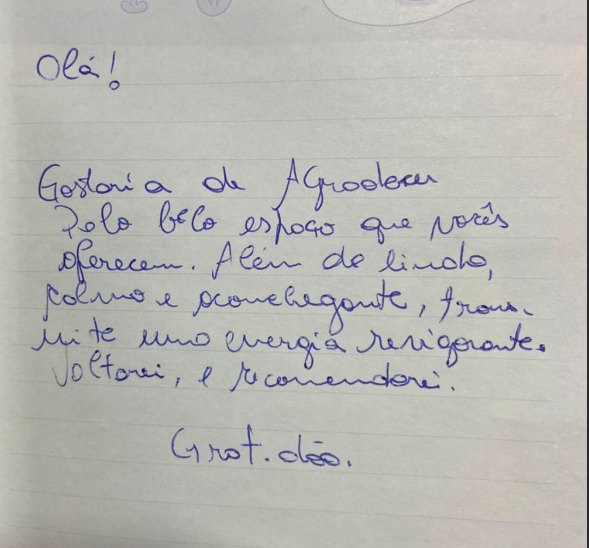 Olá!
Gostaria de Agradecer
Pelo belo espaço que vocês
oferecem. Além de lindo,
calmo e aconchegante, trans-
mite uma energia revigorante.
Voltarei, e recomendarei.
Gratidão.